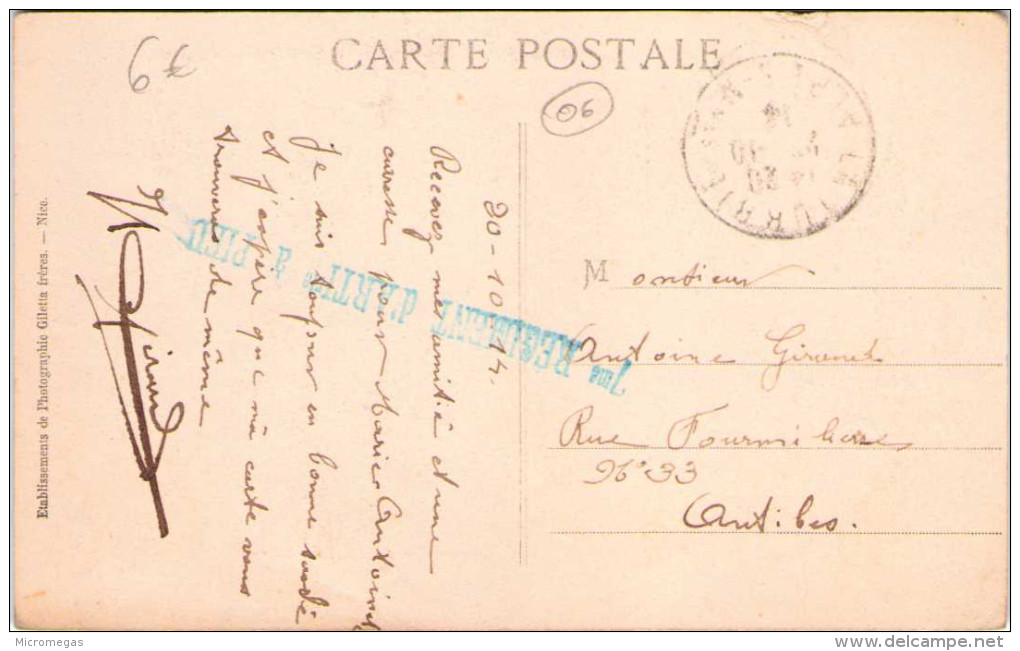 6€
CARTE POSTALE
06
20-10-14.
Recevez mes amitié et une
caresse pour Marie-Antoinet
je suis toujour en bonne santé
et j'espère que ma carte vous
trouveras de même
7me RÉGIMENT d'ARTIe à PIED
Monsieur
Antoine Giraud
Rue Fourmilière
N° 33
Antibes.
Etablissements de Photographie Giletta frères. — Nice.
Micromegas
www.delcampe.net